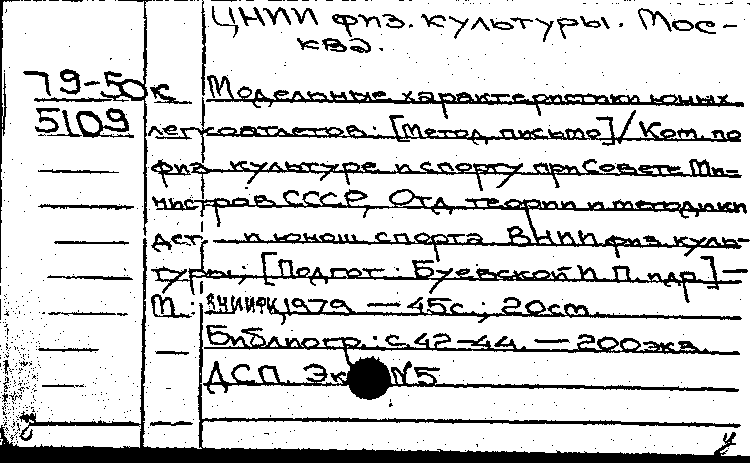 ЦНИИ физ. культуры. Мос-
ква.
79-50к Модельные характеристики юных
5109 легкоатлетов: [Метод. письмо] / Ком. по
физ. культуре и спорту при Совете Ми-
нистров СССР, Отд. теории и методики
дет. и юнош. спорта ВНИИ физ. куль-
туры; [Подгот.: Буевской И. П. и др.] —
М.: ВНИИФК, 1979. — 45с.; 20см.
Библиогр.: с. 42-44. — 200экз.
ДСП. Эк № 5
у